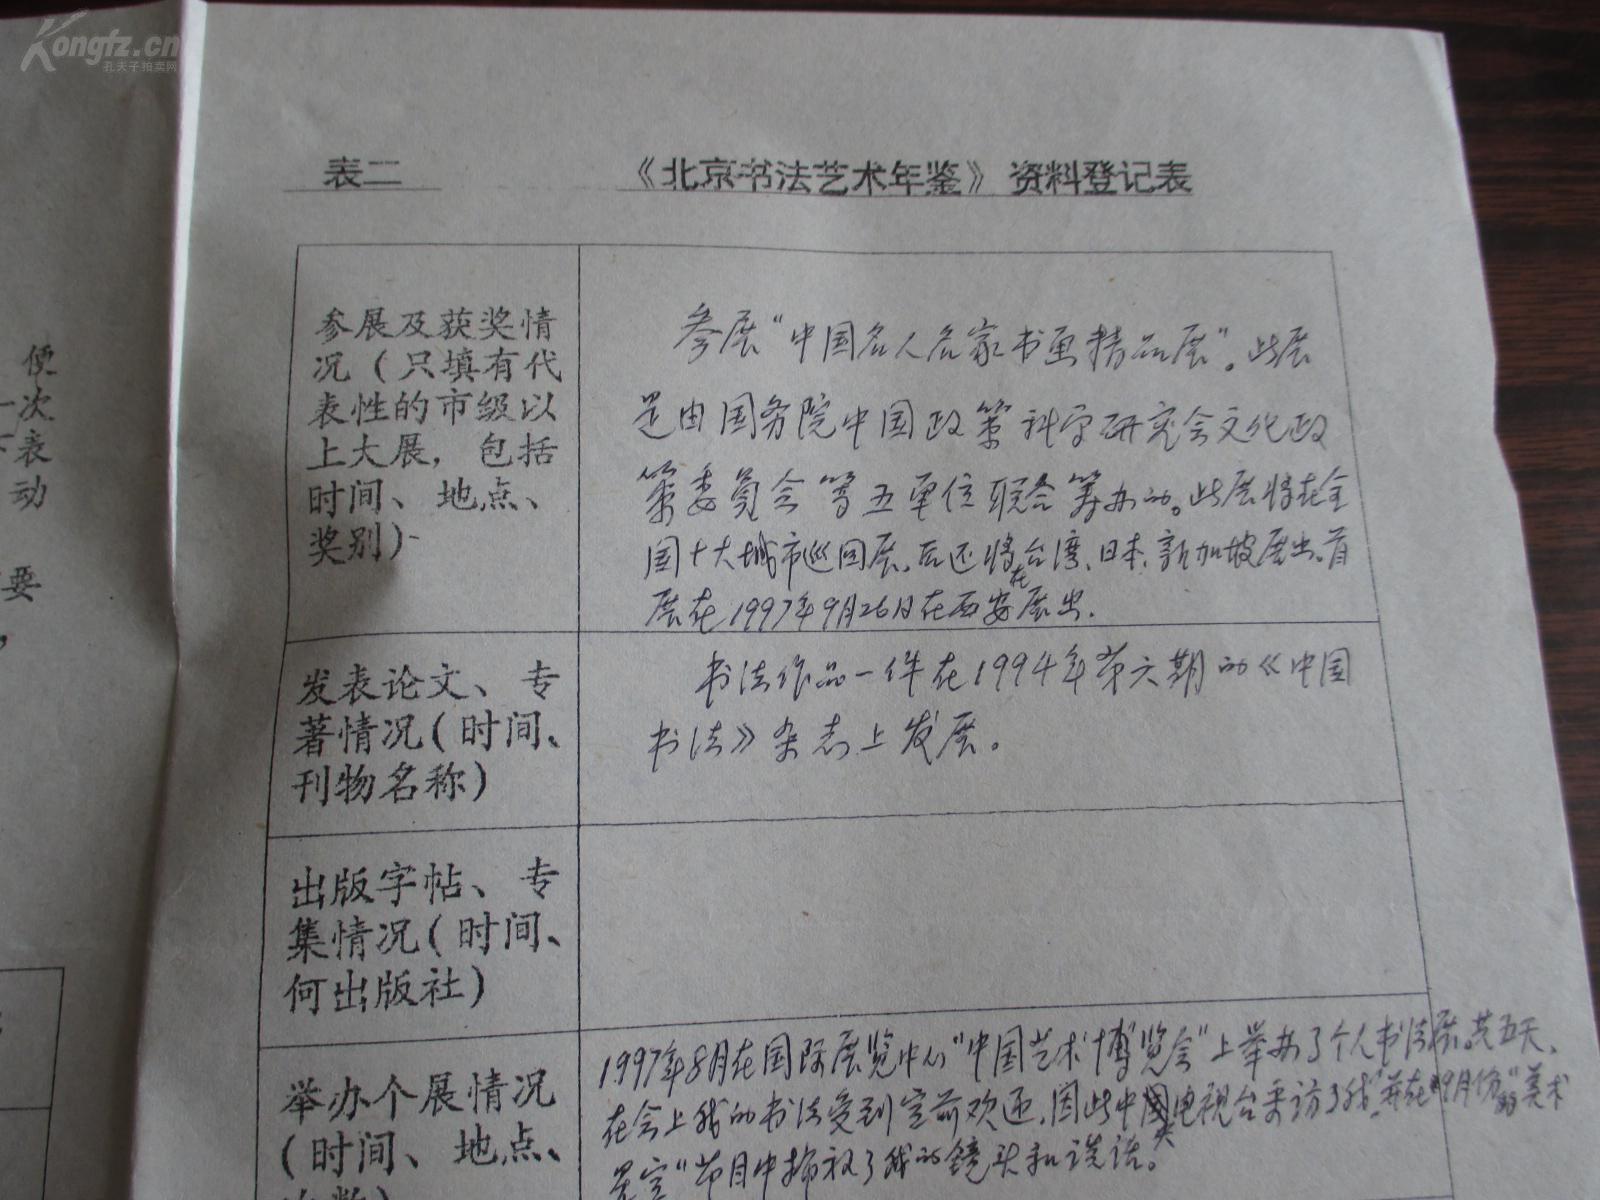 Kongfz.cn
孔夫子拍卖网
便
一次
表
动
要
，
表二
《北京书法艺术年鉴》资料登记表
参展及获奖情
况（只填有代
表性的市级以
上大展，包括
时间、地点、
奖别）
参展“中国名人名家书画精品展”。此展
是由国务院中国政策科学研究会文化政
策委员会等五单位联合筹办的。此展将在全
国十大城市巡回展。后还将在台湾、日本、新加坡展出。首
展在1997年9月26日在西安展出.
发表论文、专
著情况（时间、
刊物名称）
书法作品一件在1994年第六期的《中国
书法》杂志上发展。
出版字帖、专
集情况（时间、
何出版社）
举办个展情况
（时间、地点、
1997年8月在国际展览中心“中国艺术博览会”上举办了个人书法展。共五天、
在会上我的书法受到空前欢迎，因此中央电视台采访了我，并在9月份的“美术
星空”节目中播放了我的镜头和谈话。